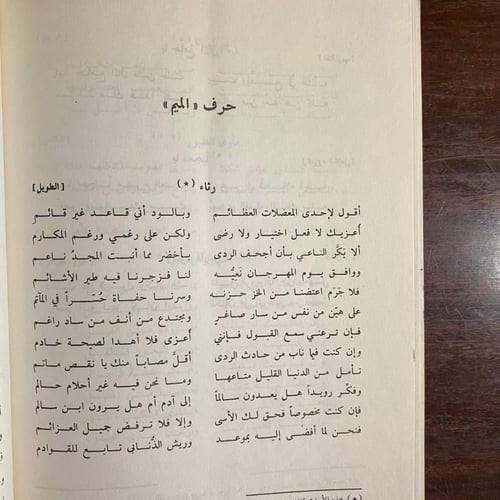 حرف «الميم»
رثاء (*) [الطويل]
أقول لإحدى المعضلات العظائم وبالود أني قاعد غير قائم
أعزيك لا فعل اختيار ولا رضى ولكن على رغمي ورغم المكارم
ألا بكر الناعي بأن أجحف الردى بأخضر مما أنبت المجد ناعم
ووافق يوم المهرجان نعيه لنا فزجرنا فيه طير الأشائم
فلا جرم اعتضنا من الخز حزنه وسرنا حفاة حسرا في المآتم
على هين من نفس من سار صاغر ومجتدع من أنف من ساد راغم
فإن ترعني سمع القبول فإنني أعزى فلا أهدا لصيحة خادم
وإن كنت فيما ناب من حادث الردى أقل مصابا منك يا نقص ماتم
تأمل من الدنيا القليل متاعها وما نحن فيه غير أحلام حالم
وفكر رويدا هل يعدون سالما إلى آدم أم هل يرون ابن سالم
فإن كنت مخصوصا فحق لك الأسى وإلا فلا ترفض جميل العزائم
فنحن لما أفضى إليه بموعد وريش الذنابى تابع للقوادم